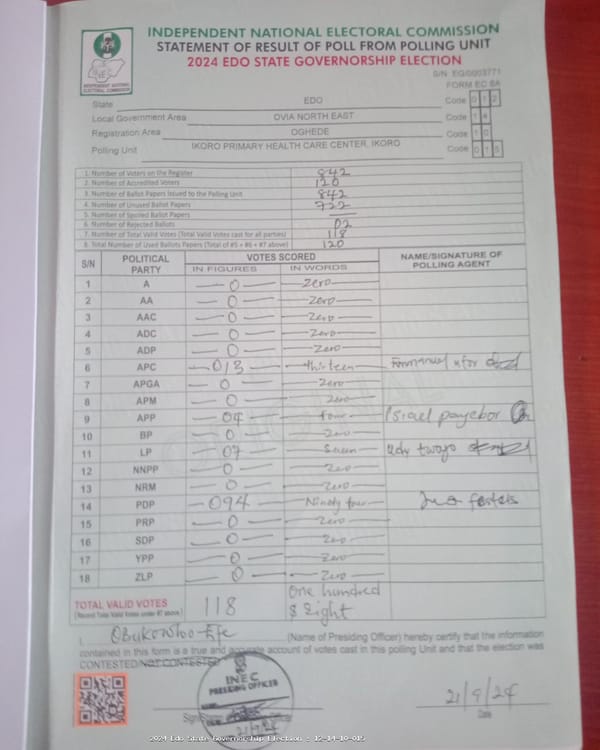 INDEPENDENT NATIONAL ELECTORAL COMMISSION
STATEMENT OF RESULT OF POLL FROM POLLING UNIT
2024 EDO STATE GOVERNORSHIP ELECTION
INDEPENDENT NATIONAL ELECTORAL COMMISSION
S/N: EG/0003771
FORM EC 8A
State EDO Code 0 1 2
Local Government Area OVIA NORTH EAST Code 1 4
Registration Area OGHEDE Code 1 0
Polling Unit IKORO PRIMARY HEALTH CARE CENTER, IKORO Code 0 1 5
1. Number of Voters on the Register 842
2. Number of Accredited Voters 120
3. Number of Ballot Papers Issued to the Polling Unit 842
4. Number of Unused Ballot Papers 722
5. Number of Spoiled Ballot Papers —
6. Number of Rejected Ballots 02
7. Number of Total Valid Votes (Total Valid Votes cast for all parties) 118
8. Total Number of Used Ballots Papers (Total of #5 + #6 + #7 above) 120
S/N POLITICAL PARTY VOTES SCORED NAME/SIGNATURE OF POLLING AGENT
IN FIGURES IN WORDS
1 A 0 Zero
2 AA 0 Zero
3 AAC 0 Zero
4 ADC 0 Zero
5 ADP 0 Zero
6 APC 013 thirteen
7 APGA 0 Zero
8 APM 0 Zero
9 APP 04 four Israel
10 BP 0 Zero
11 LP 07 Seven
12 NNPP 0 Zero
13 NRM 0 Zero
14 PDP 094 Ninety four
15 PRP 0 Zero
16 SDP 0 Zero
17 YPP 0 Zero
18 ZLP 0 Zero
TOTAL VALID VOTES 118 One hundred
& Eight
I, (Name of Presiding Officer) hereby certify that the information
contained in this form is a true and accurate account of votes cast in this polling Unit and that the election was
CONTESTED/NOT CONTESTED
INEC
PRESIDING OFFICER
21/9/24
Date
2024 Edo State Governorship Election : 12-14-10-015